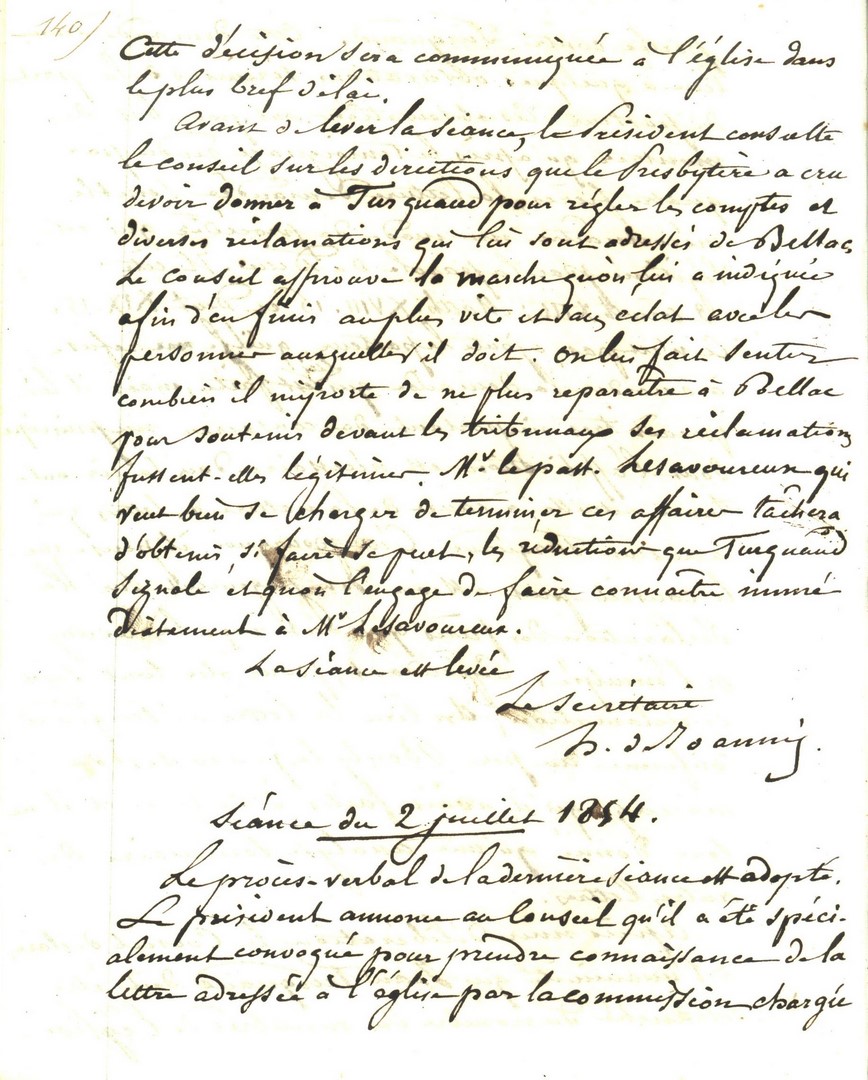 140)
Cette décision sera communiquée à l'église dans
le plus bref délai.
Avant de lever la séance, le Président consulte
le conseil sur les directions que le Presbytère a cru
devoir donner à Turquaud pour régler les comptes et
diverses réclamations qui lui sont adressés de Bellac
Le conseil approuve la marche qu'on lui a indiquée
afin d'en finir au plus vite et sans éclat avec les
personnes auxquelles il doit. On lui fait sentir
combien il importe de ne plus reparaître à Bellac
pour soutenir devant les tribunaux ses réclamations
fussent-elles légitimes. Mr. le past. Lesavoureux qui
veut bien se charger de terminer ces affaires tâchera
d'obtenir, si faire se peut, les réductions que Turquaud
signale et qu'on l'engage de faire connaître immé
diatement à Mr Lesavoureux.
La séance est levée
Le secrétaire
h. de Joannis.
Séance du 2 juillet 1854.
Le procès-verbal de la dernière séance est adopté.
Le président annonce au Conseil qu'il a été spéci-
alement convoqué pour prendre connaissance de la
lettre adressée à l'église par la commission chargée